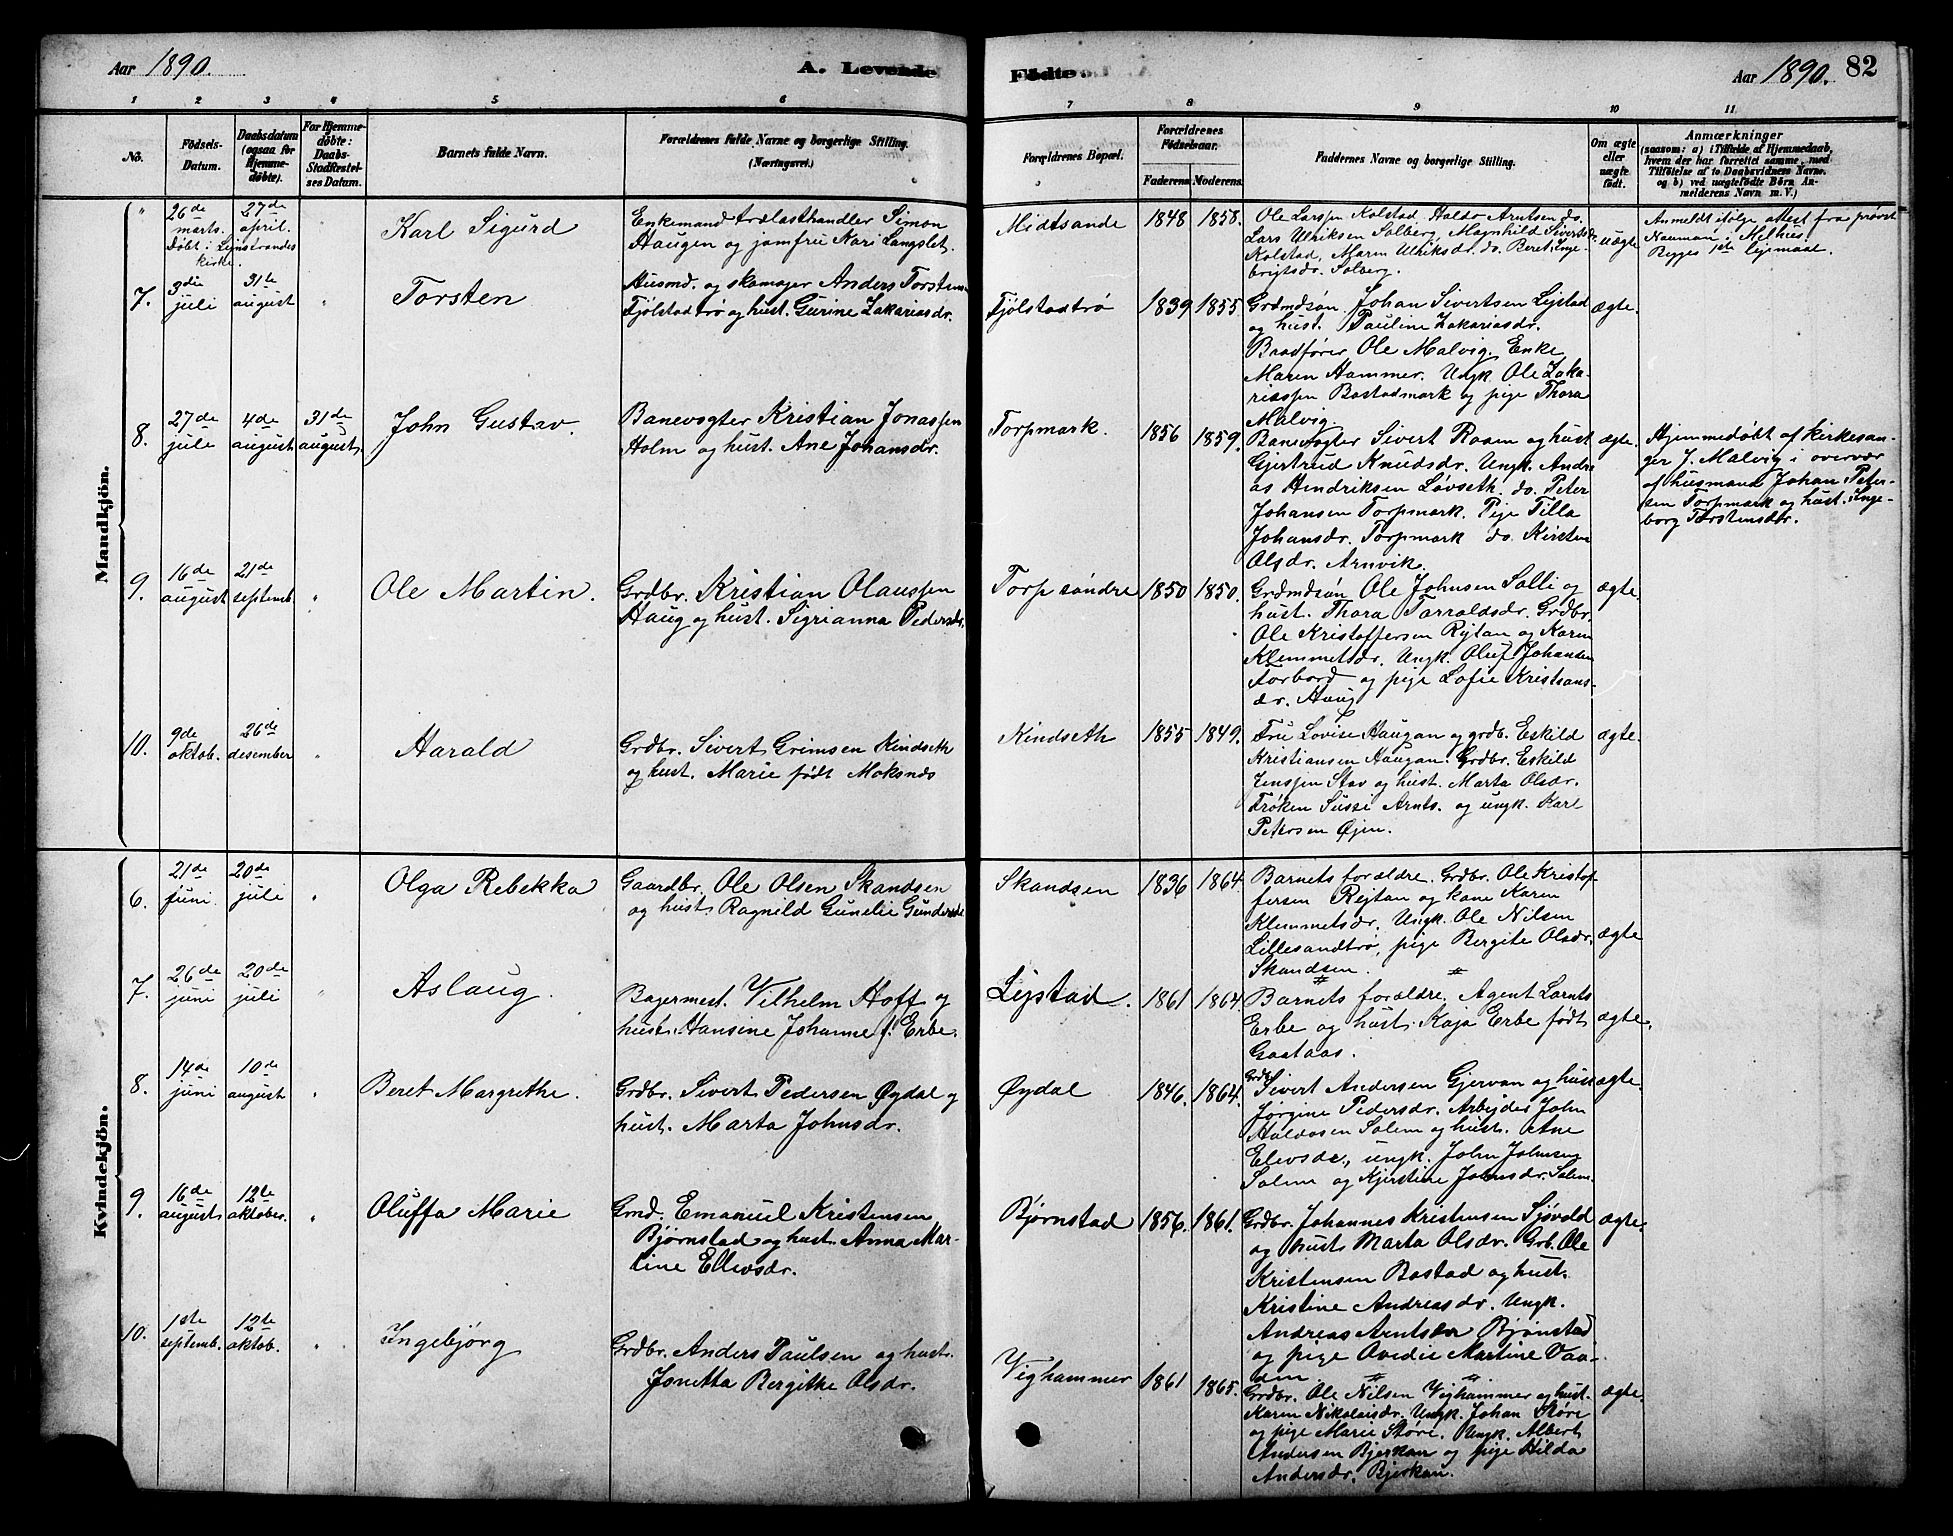 Aar 1890.
A. Levende
Fødte
Aar 1890. 82
1 2 3 4 5 6 7 8 9 10 11
No.
Fødsels-
Datum.
Daabsdatum
(ogsaa for
Hjemme-
døbte).
For Hjemme-
døbte:
Daabs-
Stadfæstel-
ses Datum.
Barnets fulde Navn.
Forældrenes fulde Navne og borgerlige Stilling.
(Næringsvei.)
Forældrenes Bopæl.
Forældrenes
Fødselsaar.
Faderens Moderens
Faddernes Navne og borgerlige Stilling.
Om ægte
eller
uægte
født.
Anmærkninger
(saasom: a) i Tilfælde af Hjemmedaab,
hvem der har forrettet samme, med
Tilføielse af to Daabsvidners Navne.
og b) ved uægtefødte Børn An-
melderens Navn m. V.)
Mandkjön.
" 26de
marts.
Døbt i Leinstrandes
kirke.
27de
april.
"
Karl Sigurd
Enkemand trælasthandler Simon
Haugen og jomfru Mari Langslet.
Midtsande
1848 1858.
Ole Larssen Kolstad, Haldo Arntsen do.
Lars Ulriksen Solberg, Magnhild Sivertsdr.
Kolstad, Maren Ulriksdr. do. Beret Inge-
brigtsdr. Solberg.
uægte
Anmeldt ifølge attest fra prøvst
Nauman i Melhus
Begges 1ste lejrmaal.
7.
3die
juli
31te
august
"
Torsten
Husmd. og skomager Anders Torstens.
Fjølstadtrø og hust. Gurine Zakariasdr.
Fjølstadtrø
1839 1855.
Grdmdsøn Johan Sivertsen Leistad
og hust. Pauline Zakariasdr.
Baadfører Ole Malvig. Enke
Maren Hammer. Ungk. Ole Zaka-
riassen Bostadmark og pige Thora
Malvig.
ægte.
8.
27de
jule
4de
august
31de
august.
John Gustav.
Banevogter Kristian Jonassen
Holm og hust. Ane Johansdr.
Torpmark.
1856 1859.
Banevogter Sivert Rosen og hust
Gjertrud Knudsdr. Ungk. Andre
as Hendriksen Løvseth. do. Peter
Johansen Torpmark. Pige Tilla
Johansdr. Torpmark do. Kirsten
Olsdr. Arnvik.
ægte.
Hjemmedøbt af kirkesan-
ger J. Malvig i overvær
af husmand Johan Peter-
sen Torpmark og hust. Inge-
borg Torstensdr.
9.
16de
august
21de
septemb.
"
Ole Martin.
Grdbr. Kristian Olaussen
Haug og hust. Sigrianna Pedersdr.
Torp søndre
1850 1850.
Grdmdsøn Ole Johnsen Salli og
hust. Thora Tarraldsdr. Grdbr.
Ole Kristoffersen Reitan og Karen
Klemmetsdr. Ungk. Oluf Johansen
Forbord og pige Sofie Kristians-
dr. Haug
ægte.
10.
9de
oktob.
26de
desember
"
Harald
Grdbr. Sivert Grimsen Kindseth
og hust. Marie født Moksnes
Kindseth
1855 1849.
Fru Lovise Haugan og grdb. Eskild
Kristiansen Haugan. Grdbr. Eskild
Jenssen Stav og hust. Marta Olsdr.
Frøken Sussi Arnts. og ungk. Karl
Petersen Øjen.
ægte.
Kvindekjön.
6.
21de
juni.
20de
juli
"
Olga Rebekka
Gaardbr. Ole Olsen Skandsen
og hust. Ragnild Gunelie Gundersdr
Skandsen
1836 1864.
Barnets forældre. Grdbr. Ole Kristof-
fersen Rejtan og kone Karen
Klemmetsdr. Ungk. Ole Nilsen
Lillesandtrø, pige Bergite Olsdr.
Skandsen.
ægte
7.
26de
juni
20de
juli
"
Aslaug.
Bagermest. Vilhelm Hoff og
hust. Hansine Johanne f. Erbe.
Lejstad.
1861 1864.
Barnets forældre. Agent Lornts
Erbe og hust. Kaja Erbe født
Gaataas.
ægte.
8.
14de
juni
10de
august
"
Beret Margrethe.
Grdbr. Sivert Pedersen Øydal og
hust. Marta Johnsdr.
Øydal
1846. 1864.
Grdb. Sivert Andersen Gjervan og hust
Jørgine Pedersdr. Arbejder John
Haldosen Solem og hust. Ane
Elevsdr, ungk. John Johnsen
Solem og Kjerstine Johnsdr. Solem.
ægte.
9.
16de
august
12te
oktober.
"
Oluffa Marie
Grmd. Emanuel Kristensen
Bjørnstad og hust. Anna Mar-
tine Ellevsdr.
Bjørnstad
1856. 1861.
Grdbr. Johannes Kristensen Sjøvold
og hust. Marta Olsdr. Grb. Ole
Kristensen Bostad og hust.
Kristine Andreasdr. Ungk.
Andreas Arntsen Bjønstad
og pige Avedie Martine Vaa-
ægte.
10.
1ste
septemb.
12te
oktob.
"
Ingebjørg
Grdbr. Anders Paulsen og hust.
Jonetta Bergithe Olsdr.
Vighammer
1861 1865.
Grdbr. Ole Nilsen Vighammer og hust.
Karen Nikolaisdr. Ungk. Johan Støre
og pige Marie Støre. Ungk. Albert
Andersen Bjerkan og pige Hilda
Andersdr. Bjerkan.
ægte.